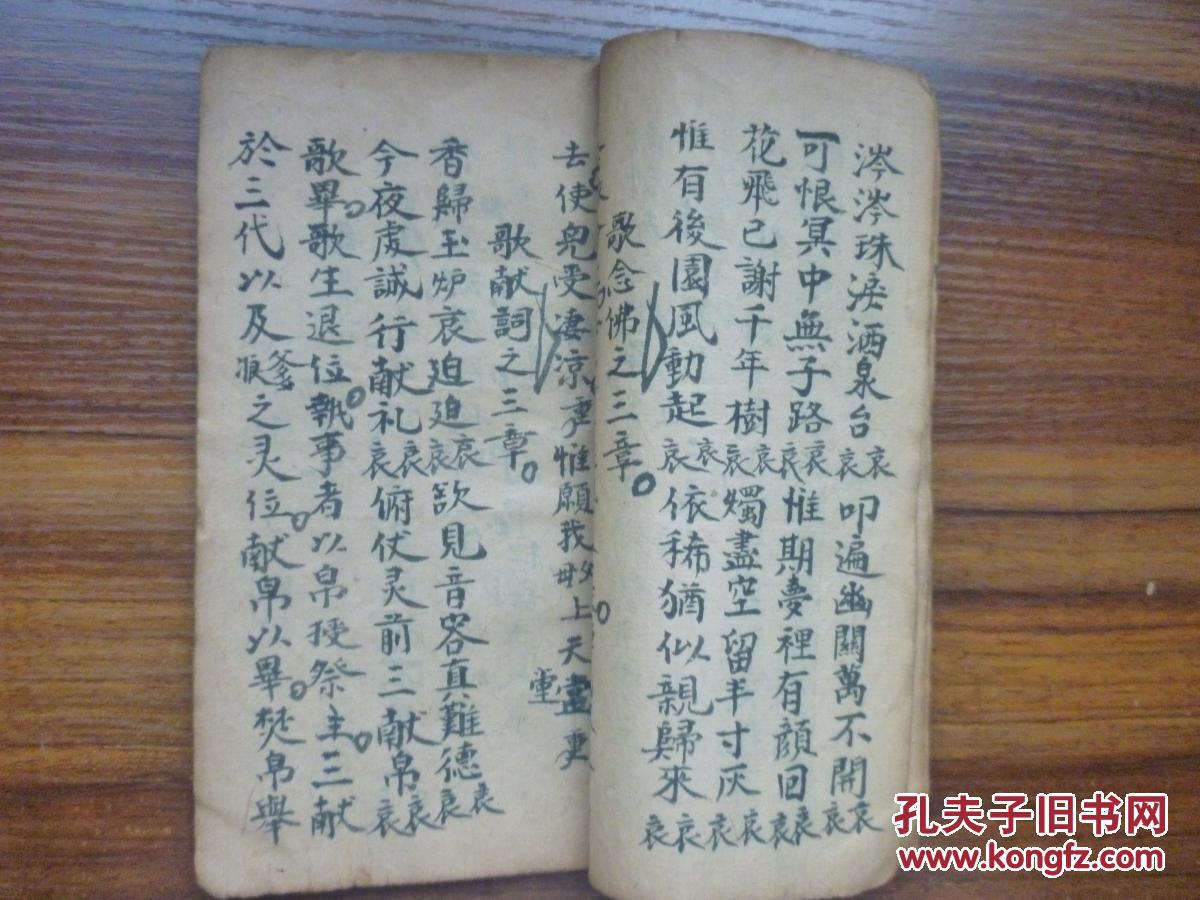 涔涔珠淚洒泉台哀哀叩遍幽關萬不開哀哀
可恨冥中無子路哀哀惟期夢裡有顔回哀哀
花飛已謝千年樹哀哀燭盡空留半寸灰哀哀
惟有後園風動起哀哀依稀猶似親歸來哀哀
歌念佛之三章。
去使兒受凄凉重重惟願我父母上天堂
歌献詞之三章。
香歸玉炉哀迫迫哀哀欲見音容真難德哀哀
今夜虔誠行献礼哀哀俯伏灵前三献帛哀哀
歌畢。歌生退位。執事者以帛授祭主。三献
於三代以及爹娘之灵位。献帛以畢。焚帛舉
孔夫子旧书网
www.kongfz.com